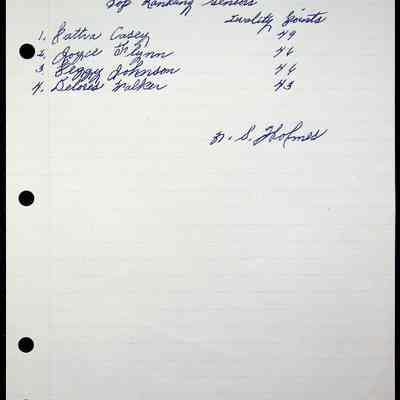 Top Ranking Seniors
Quality Points
1. Kattie Casey 49
2. Joyce Flynn 46
3. Peggy Johnson 46
4. Delores Walker 43
N. S. Holmes